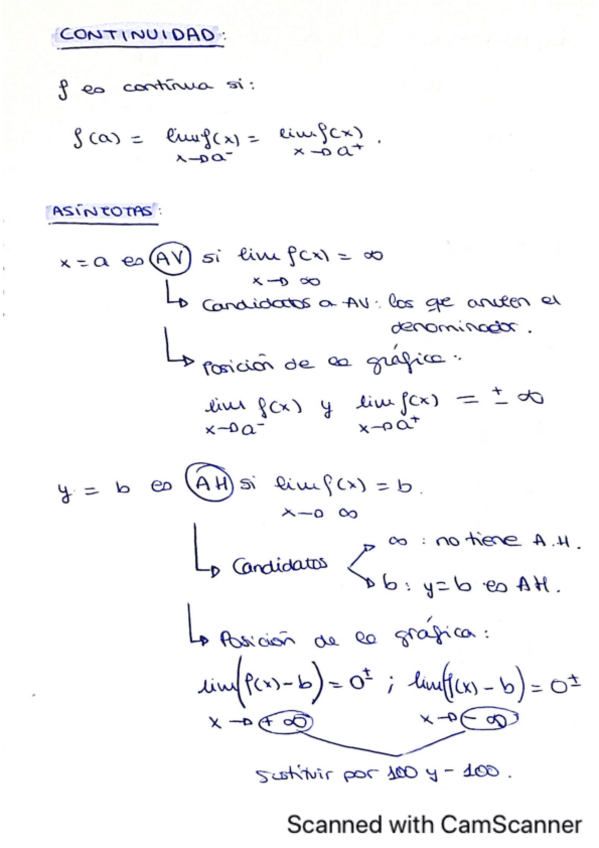 CONTINUIDAD:
f es contínua si:
f(a) = lim f(x) = lim f(x) .
x→a⁻ x→a⁺
ASÍNTOTAS:
x = a es AV si lim f(x) = ∞
x→∞
↳ Candidatos a AV: los qe anulen el
denominador.
↳ Posición de la gráfica:
lim f(x) y lim f(x) = ± ∞
x→a⁻ x→a⁺
y = b es AH si lim f(x) = b.
x→∞
↳ Candidatos
∞ : no tiene A.H.
b: y=b es AH.
↳ Posición de la gráfica:
lim(f(x)-b) = 0± ; lim(f(x)-b) = 0±
x→+∞ x→-∞
Sustituir por 100 y -100.
Scanned with CamScanner